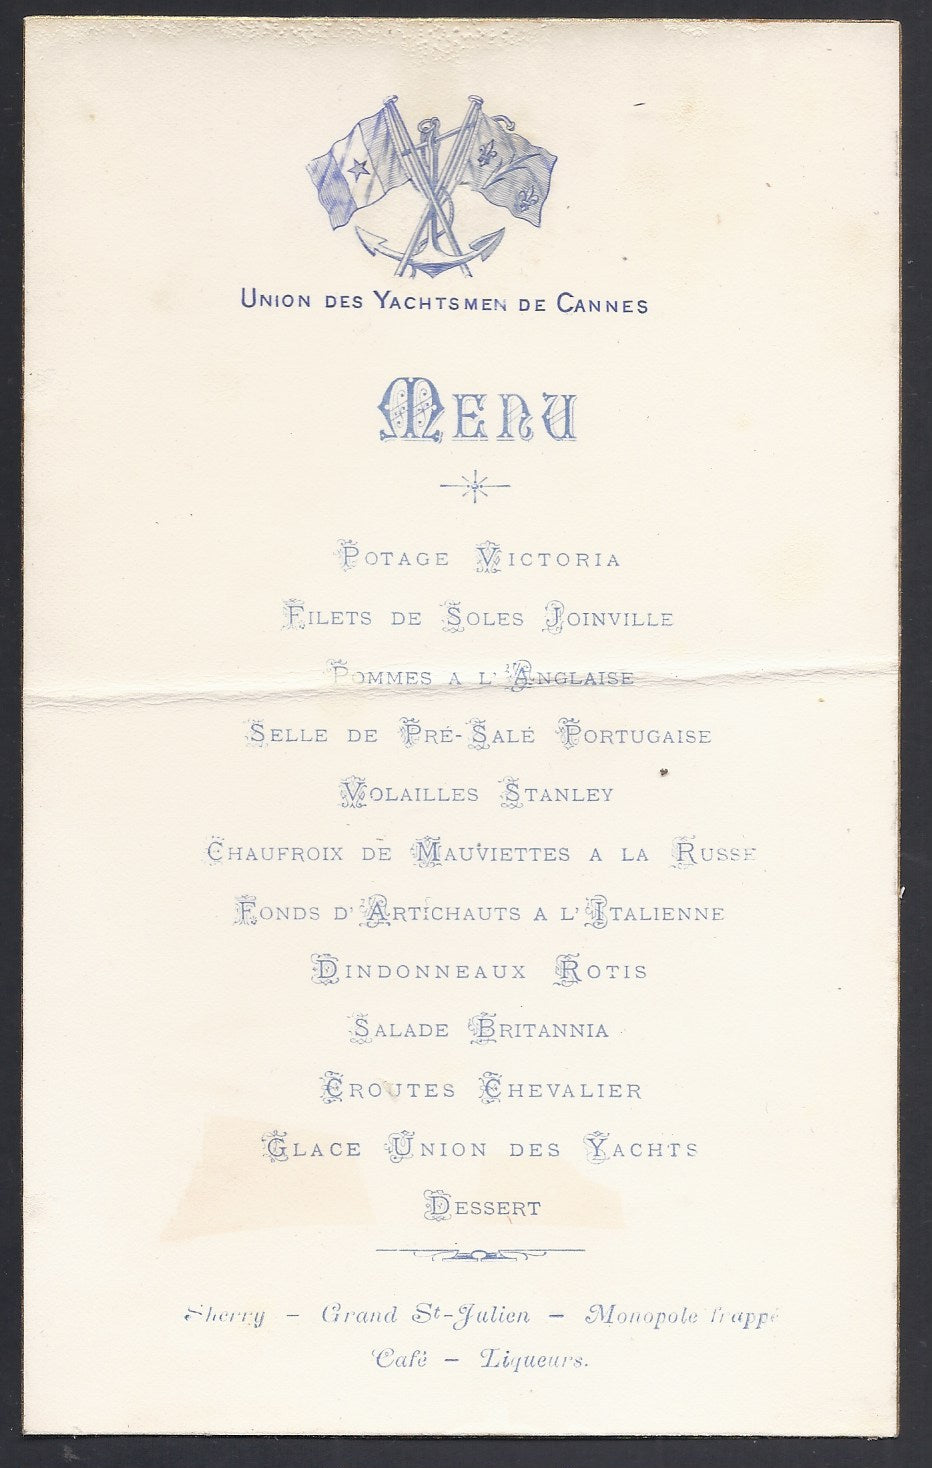 Union des Yachtsmen de Cannes
Menu
Potage Victoria
Filets de Soles Joinville
Pommes a l'Anglaise
Selle de Pré-Salé Portugaise
Volailles Stanley
Chaufroix de Mauviettes a la Russe
Fonds d'Artichauts a l'Italienne
Dindonneaux Rotis
Salade Britannia
Croutes Chevalier
Glace Union des Yachts
Dessert
Sherry – Grand St-Julien – Monopole frappé
Café – Liqueurs.